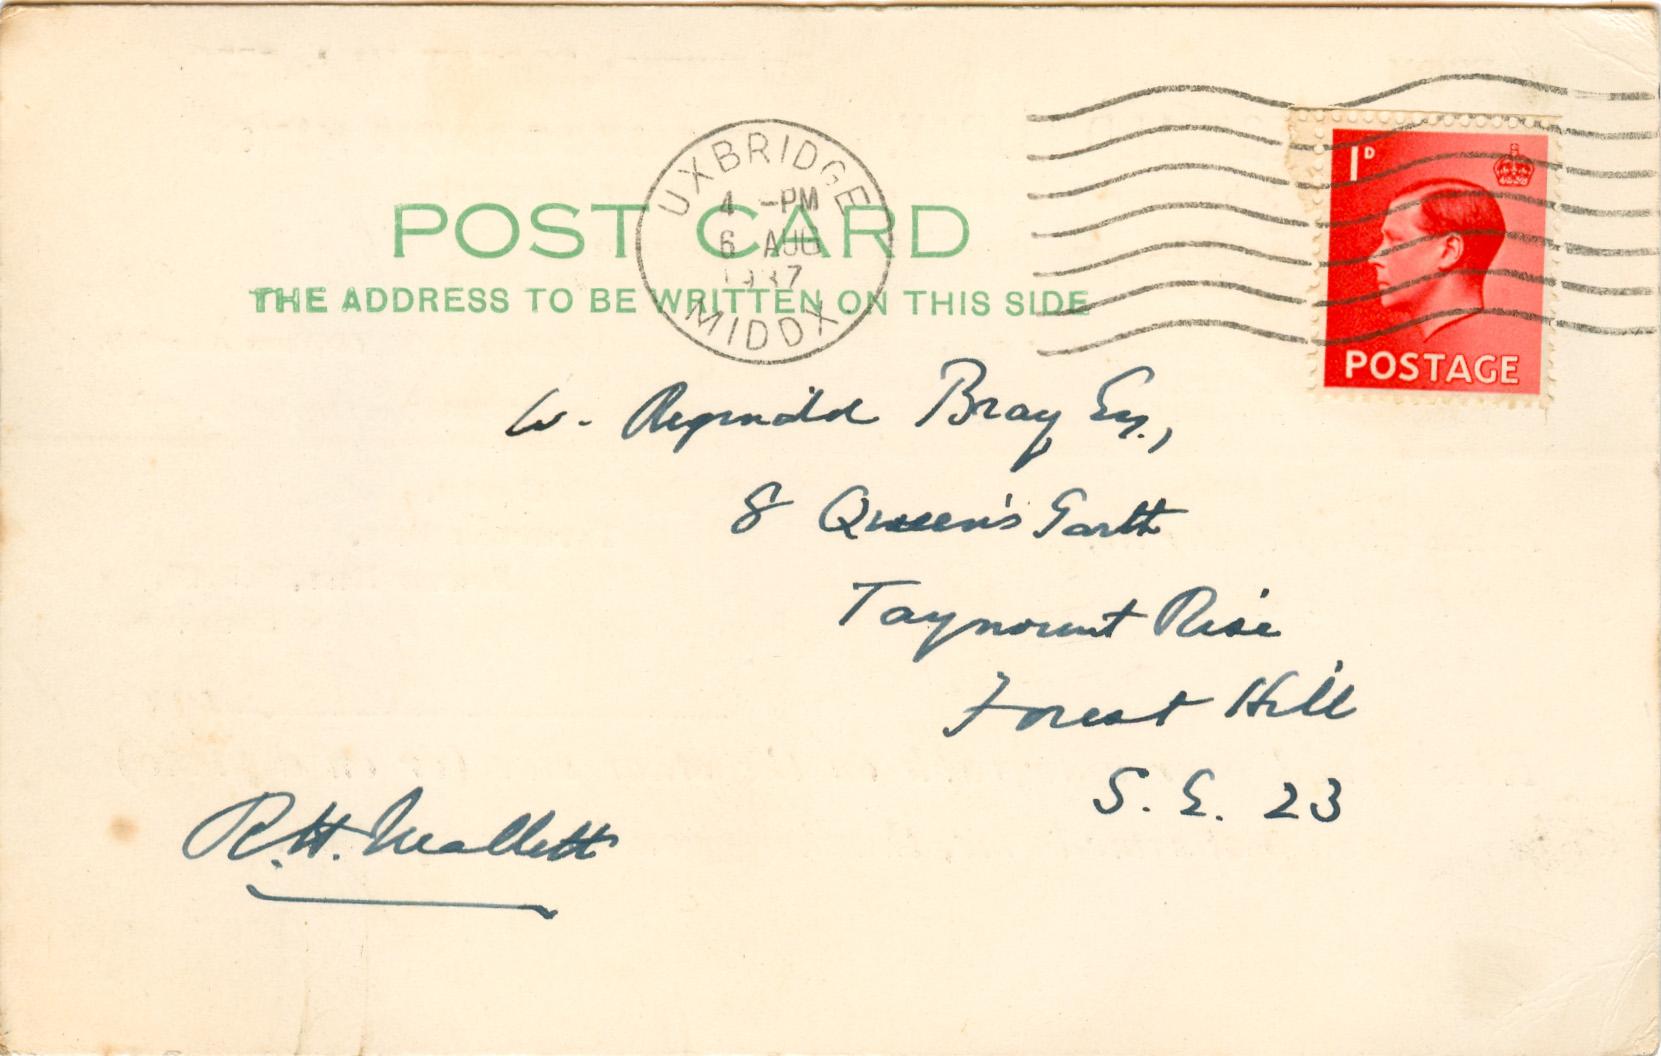 UXBRIDGE
4 - PM
6 AUG
1937
MIDDX
1D
POSTAGE
POST CARD
THE ADDRESS TO BE WRITTEN ON THIS SIDE
W. Reginald Bray Esq.,
8 Queen's Garth
Taymount Rise
Forest Hill
S.E. 23
R.H. Mallett